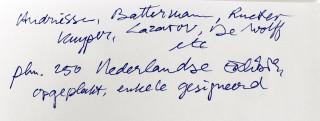 Andriesse, Batterman, Rueter
Kuyper, Lazarov, De Wolff
etc
plm. 250 Nederlandse exlibris,
opgeplakt, enkele gesigneerd